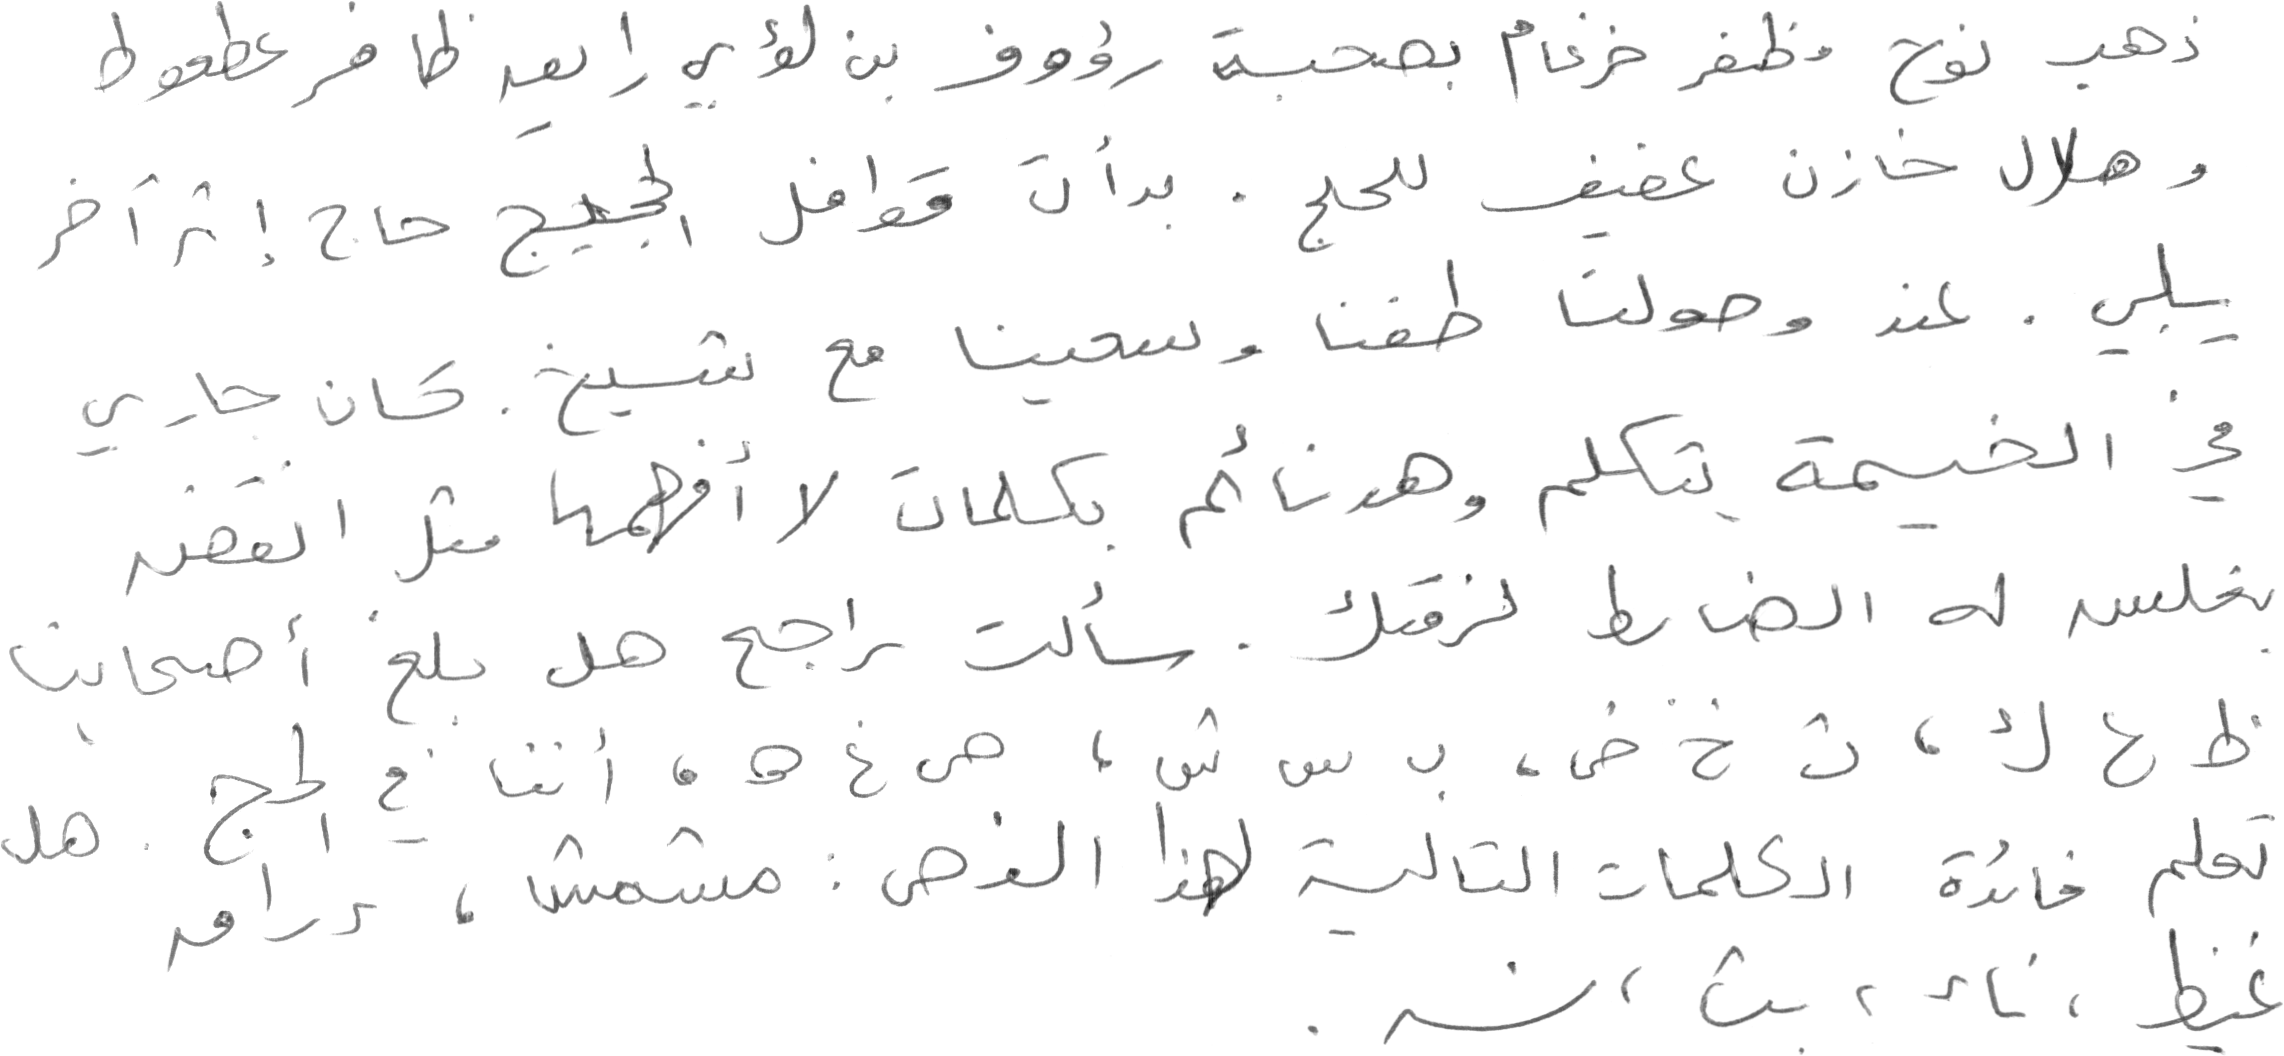 ذهب نوح مظفر ضرغام بصحبة رؤوف بن لؤي رايعد ظافر عطعوط
و هلال خازن عفيف للحج . بدأت قوافل الحجيج حاج إثر آخر
يلبي . عند وصولنا طفنا وسعينا مع شيخ . كان جاري
في الخيمة يتكلم وهو نائم بكلمات لا أفهمها مثل انقض
بغلس له الضابط لزقك . سألت راجح هل بلغ أصحابك
ظ ع ك ، ث خ ض ، ب س ش ، ص غ ه ، أننا في الحج . هل
تعلم فائدة الكلمات التالية لهذا النص : مشمش ، درافه
غيظ ، نائ ، بث ، نسه .